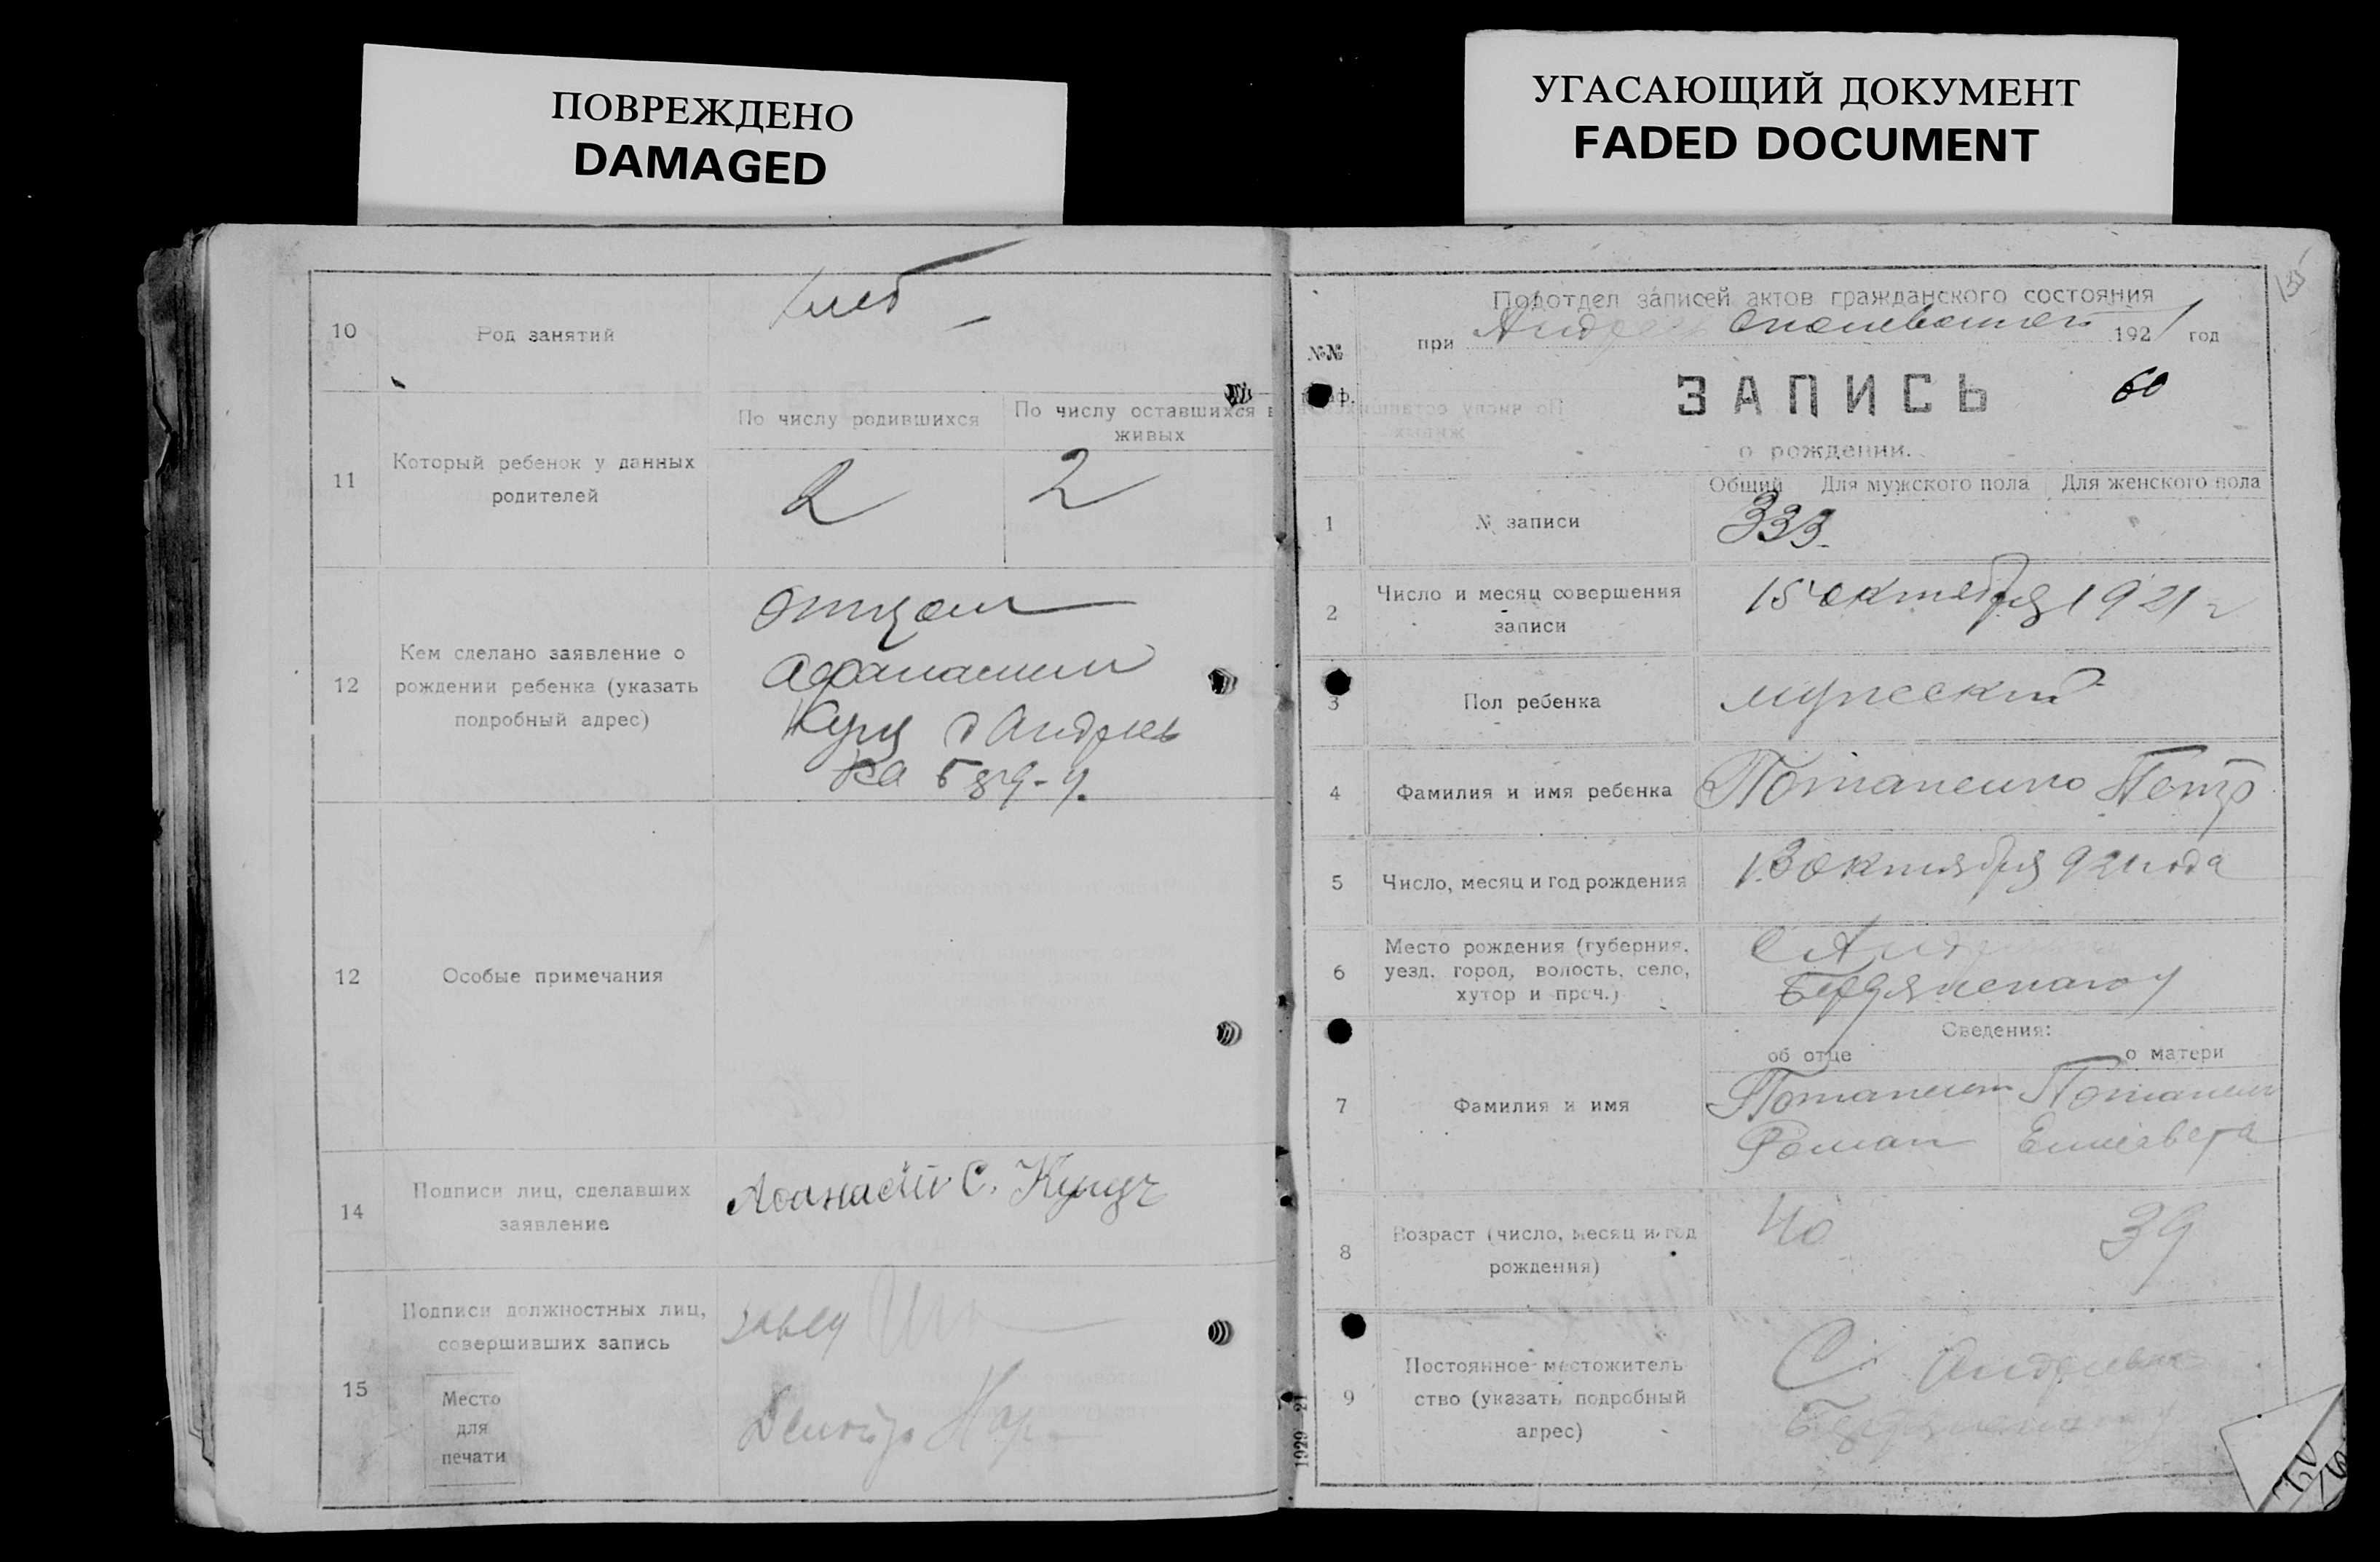 ПОВРЕЖДЕНО
DAMAGED
УГАСАЮЩИЙ ДОКУМЕНТ
FADED DOCUMENT
10
Род занятий
хлеб
11
Который ребенок у данных
родителей
По числу родившихся
По числу оставшихся в
живых
2
2
12
Кем сделано заявление о
рождении ребенка (указать
подробный адрес)
Отцом
Афанасий
Куц с Андреев
ка Бер-у.
12
Особые примечания
14
Подписи лиц, сделавших
заявление
Афанасий С. Куцъ
15
Подписи должностных лиц,
совершивших запись
Место
для
печати
Завед
Делопр
135
№№
граф.
Подотдел записей актов гражданского состояния
при Андреев 1921 год
ЗАПИСЬ 60
о рождении.
Общий Для мужского пола Для женского пола
1
№ записи
333
2
Число и месяц совершения
записи
15 октября 1921 г
3
Пол ребенка
мужский
4
Фамилия и имя ребенка
Потапенко Петр
5
Число, месяц и год рождения
13 октября 921 года
6
Место рождения (губерния,
уезд, город, волость, село,
хутор и проч.)
С Андр
Бердянского у
Сведения:
об отце
о матери
7
Фамилия и имя
Потапенко
Роман
Потапен
Елисавета
8
Возраст (число, месяц и год
рождения)
40
39
9
Постоянное местожитель
ство (указать подробный
адрес)
С. Андреевка
Бердянского у
1929 21